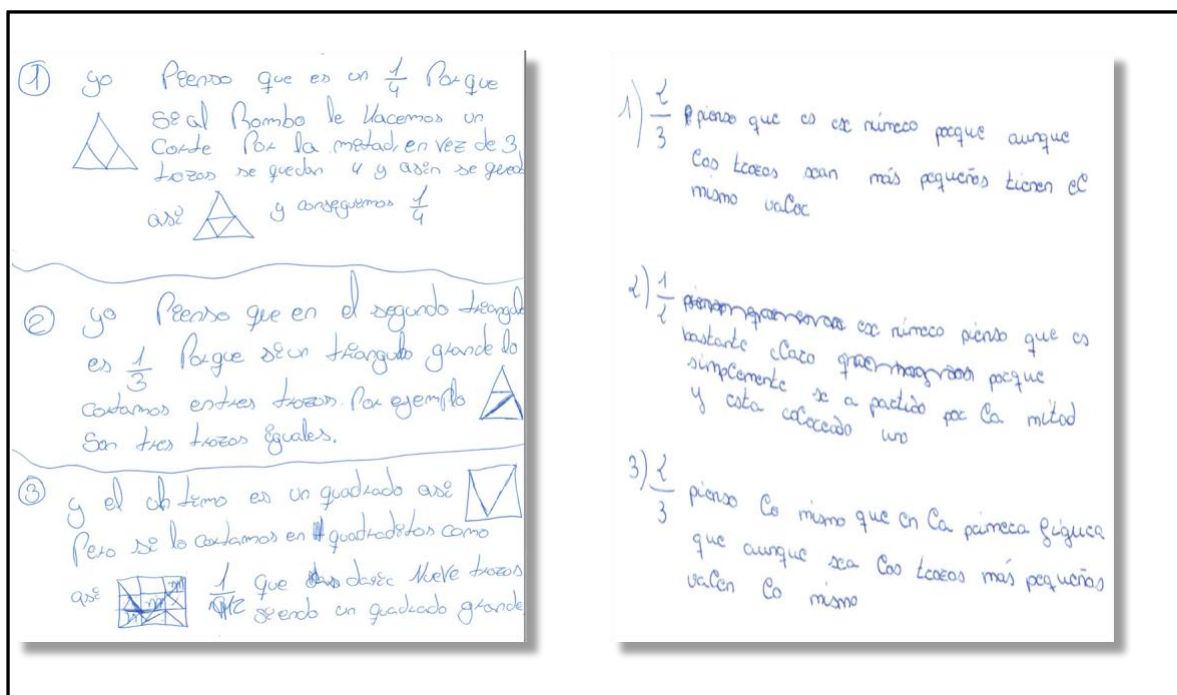 ① yo Pienso que es un 1/4 Porque
si al Rombo le Hacemos un
Corte Por la metad, en vez de 3
trozos se quedan 4 y asin se queda
asi y conseguimos 1/4
② yo Pienso que en el segundo triangulo
es 1/3 Porque si un triangulo grande lo
cortamos entres trozos. Por egemplo
Son tres trozos iguales.
③ y el ultimo es un quadrado asi
Pero si lo cortamos en quadraditos como
asi 1/ que daric Nueve trozos
siendo un quadrado grande
1) 2/3 pienso que es ese número porque aunque
los trozos sean más pequeños tienen el
mismo valor
2) 1/2 ese número pienso que es
bastante claro porque
simplemente se a partido por la mitad
y esta coloceado uno
3) 2/3 pienso lo mismo que en la primera figura
que aunque sea los trozos más pequeños
valen lo mismo